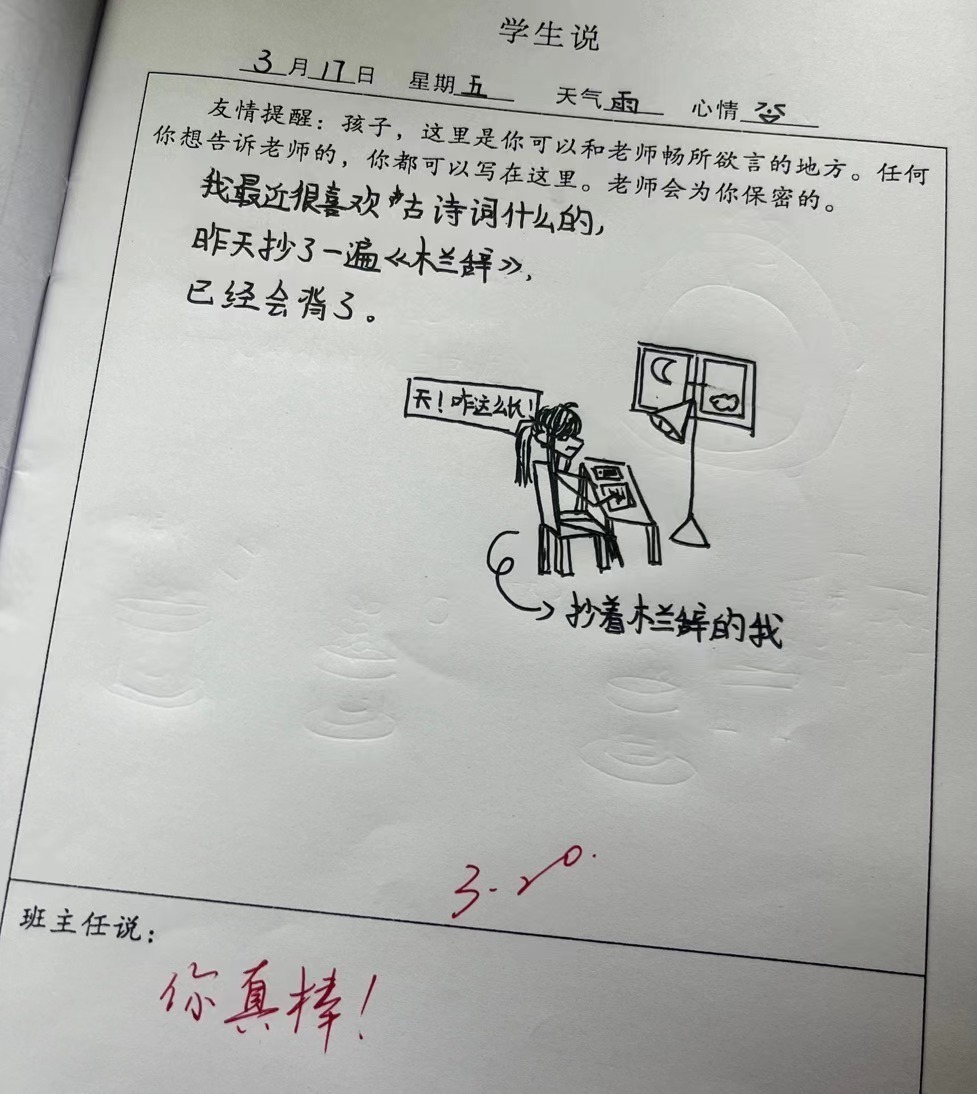 学生说
3月17日 星期五 天气雨 心情
友情提醒：孩子，这里是你可以和老师畅所欲言的地方。任何
你想告诉老师的，你都可以写在这里。老师会为你保密的。
我最近很喜欢古诗词什么的，
昨天抄了一遍《木兰辞》，
已经会背了。
天！咋这么长！
抄着木兰辞的我
3.20.
班主任说：
你真棒！